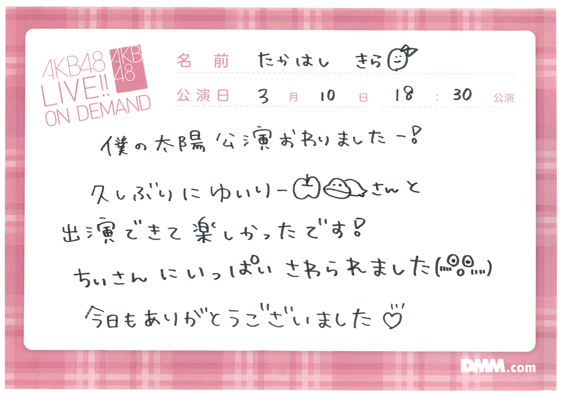 AKB48
LIVE!!
ON DEMAND
AKB
48
名前 たかはし きら
公演日 3月10日 18:30 公演
僕の太陽公演おわりましたー!
久しぶりにゆいりーさんと
出演できて楽しかったです!
ちぃさんにいっぱいさわられました
今日もありがとうございました♡
DMM.com